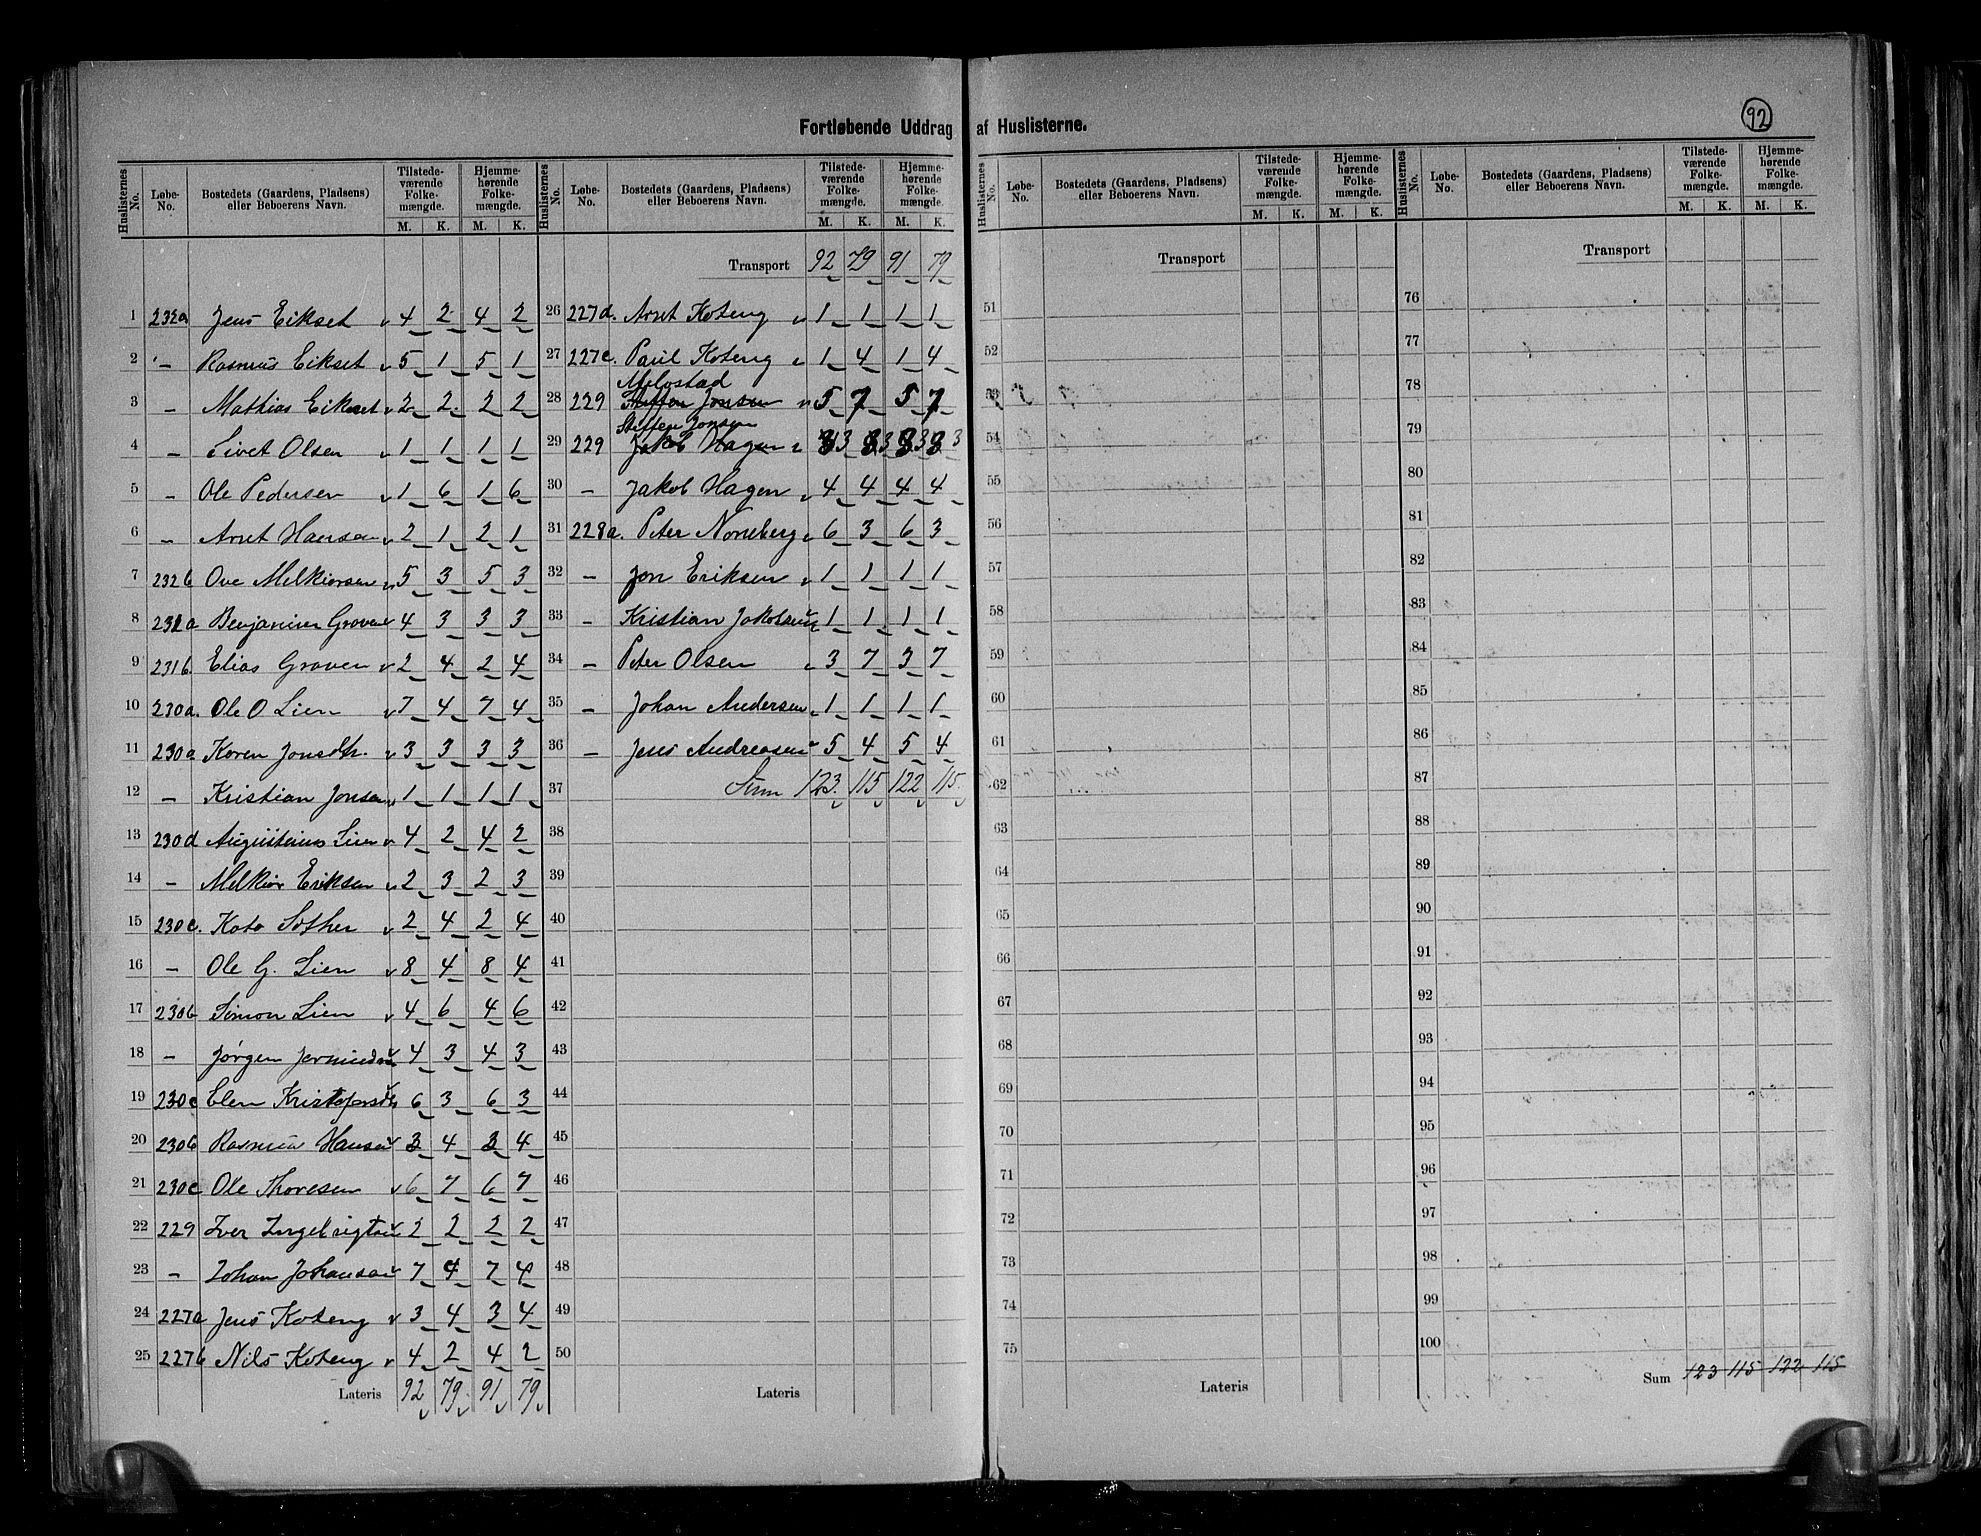 92
Fortløbende Uddrag af Huslisterne.
Huslisternes No. Løbe-No. Bostedets (Gaardens, Pladsens) eller Beboerens Navn. Tilstedeværende Folkemængde. M. K. Hjemmehørende Folkemængde. M. K.
1 232a Jens Eikset v 4 2 4 2
2 " Rasmus Eikset v 5 1 5 1
3 " Mathias Eikset v 2 2 2 2
4 " Sivet Olsen v 1 1 1 1
5 " Ole Pedersen v 1 6 1 6
6 " Arnt Hansen v 2 1 2 1
7 232b Ove Melkiorsen v 5 3 5 3
8 231a Benjamin Groven v 4 3 3 3
9 231b Elias Groven v 2 4 2 4
10 230a. Ole O Lien v 7 4 7 4
11 230a Karen Jonsdtr. v 3 3 3 3
12 " Kristian Jonsen v 1 1 1 1
13 230d Augustinus Lien v 4 2 4 2
14 " Melkior Eriksen v 2 3 2 3
15 230c. Kato Sother 2 4 2 4
16 " Ole G. Lien v 8 4 8 4
17 230b Simon Lien v 4 6 4 6
18 " Jørgen v 4 3 4 3
19 230c Elen Kristofersdtr v 6 3 6 3
20 230b Rasmus Hansen v 3 4 3 4
21 230c Ole Thoresen v 6 7 6 7
22 229 Iver Ingebrigtsen v 2 2 2 2
23 " Johan Johansen v 7 4 7 4
24 227a Jens Koteng v 3 4 3 4
25 227b Nils Koteng v 4 2 4 2
Lateris 92 79 91 79
Huslisternes No. Løbe-No. Bostedets (Gaardens, Pladsens) eller Beboerens Navn. Tilstedeværende Folkemængde. M. K. Hjemmehørende Folkemængde. M. K.
Transport 92 79 91 79
26 227d. Arnt Koteng v 1 1 1 1
27 227c. Paul Koteng v 1 4 1 4
Melostad
28 229 Steffen Jonsen v 5 7 5 7
Steffen Jonsen
29 229 Jakob Hagen v 3 3 3 3
30 " Jakob Hagen v 4 4 4 4
31 228a. Peter Noreberg v 6 3 6 3
32 " Jon Eriksen v 1 1 1 1
33 " Kristian Jakobsen v 1 1 1 1
34 " Peter Olsen v 3 7 3 7
35 " Johan Andersen v 1 1 1 1
36 " Jens Andreasen v 5 4 5 4
37 Sum 123 115 122 115
38
39
40
41
42
43
44
45
46
47
48
49
50
Lateris
Huslisternes No. Løbe-No. Bostedets (Gaardens, Pladsens) eller Beboerens Navn. Tilstedeværende Folkemængde. M. K. Hjemmehørende Folkemængde. M. K.
Transport
51
52
53
54
55
56
57
58
59
60
61
62
63
64
65
66
67
68
69
70
71
72
73
74
75
Lateris
Huslisternes No. Løbe-No. Bostedets (Gaardens, Pladsens) eller Beboerens Navn. Tilstedeværende Folkemængde. M. K. Hjemmehørende Folkemængde. M. K.
Transport
76
77
78
79
80
81
82
83
84
85
86
87
88
89
90
91
92
93
94
95
96
97
98
99
100
Sum 123 115 122 115